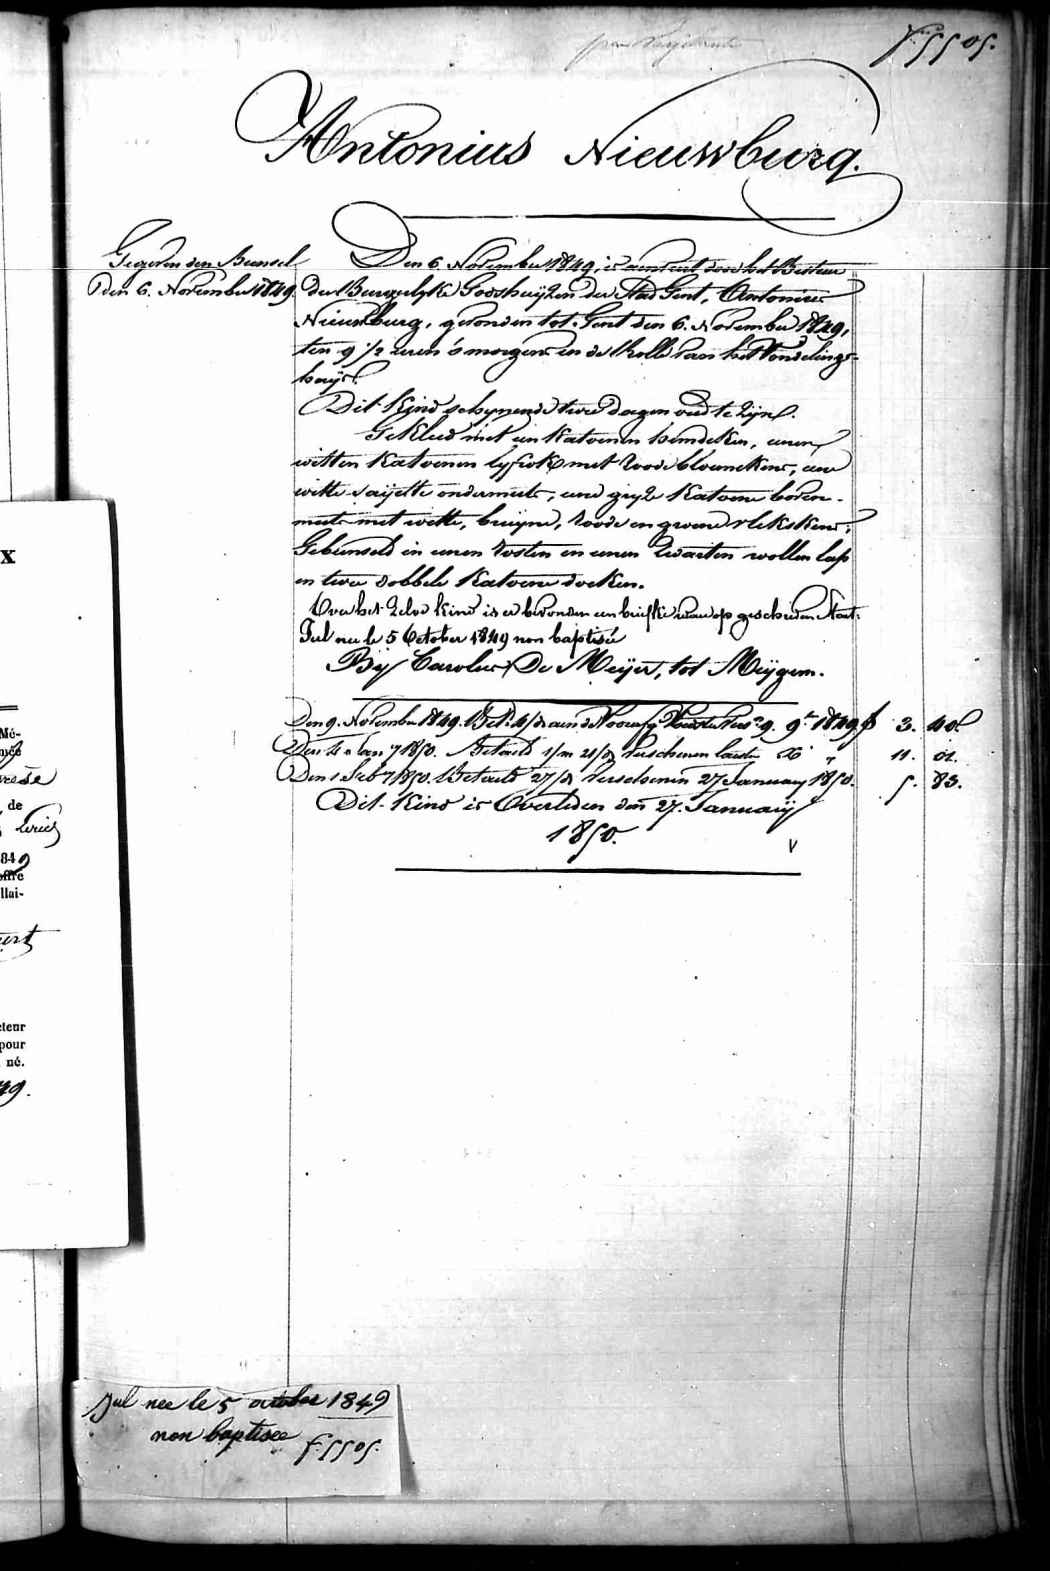 f° 5505.
Antonius Nieuwburg.
Gegeven den Bunsel
den 6. November 1849.
Den 6. November 1849, is aenveird door het Bestuer
der Burgerlyke Godshuyzen der Stad Gent, Antonius
Nieuwburg, gevonden tot Gent den 6. November 1849,
ten 9 1/2 uren 's morgens in de Rolle van het Vondelings-
huys.
Dit Kind schynende twee dagen oud te zyn.
Gekleed met een Katoenen hemdeken, eenen
witten Katoenen lyfrok met roode bloemekens, eene
witte sayette ondermuts, eene gryze Katoene boven-
muts met witte, bruyne, roode en groene vlekskens;
Gebunseld in eenen rosten en eenen zwarten wollen lap
en twee dobbele Katoene doeken.
Over het zelve kind is er bevonden een briefke waerop geschreven staet:
Jul nee le 5 October 1849 non baptisée
By Carolus De Meyer, tot Meygem.
Den 9. November 1849. Bet. aen de Voorm 9. 9bre 1849 f 3. 40.
Den 4 Jan 7/1850. Betaeld verschenen laetsten Xb " 11. 01.
Den 1 Feb 7/1850. Betaeld 27/d verschenen 27 January 1850. 5. 83.
Dit Kind is Overleden den 27. January
1850.
V
x
Mé-
de
1849
offre
llai-
cteur
pour
né.
49.
Jul nee le 5 october 1849
non baptisee
f° 5505.